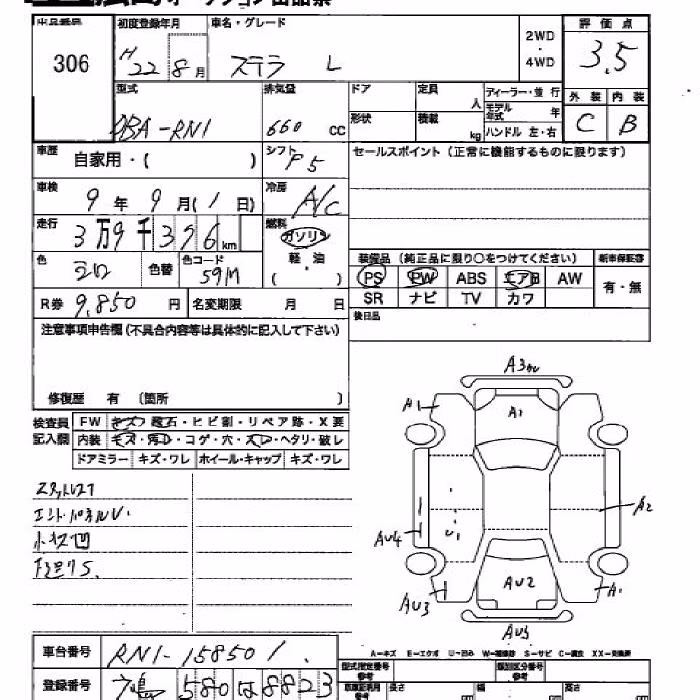 306
初度登録年月 車名・グレード
H22 8月 ステラ L
2WD・4WD
評価点
3.5
外装 内装
C B
型式 排気量 ドア 定員 人 ディーラー・並行
DBA-RN1 660 CC 形状 積載 kg モデル年式 年
ハンドル 左・右
車歴 自家用・( ) シフト P5
セールスポイント(正常に機能するものに限ります)
車検 9年 9月(1日) 冷房 A/C
走行 3万9千376km 燃料 ガソリン
軽油
( )
色 シロ 色替 色コード 59M
装備品(純正品に限り○をつけてください) 新車保証書
PS PW ABS エアB AW 有・無
SR ナビ TV カワ
R券 9,850円 名変期限 月 日
後日品
注意事項申告欄(不具合内容等は具体的に記入して下さい)
修復歴 有 (箇所 )
検査員記入欄
FW キズ・飛石・ヒビ割・リペア跡・X要
内装 キズ・汚レ・コゲ・穴・スレ・ヘタリ・破レ
ドアミラー キズ・ワレ ホイール・キャップ キズ・ワレ
小キズ凹
A3
A1
A1
A2
AU4
U1
AU2
AU3
A1
AU3
車台番号 RN1-158501
A=キズ E=エクボ U=凹み W=補修跡 S=サビ C=腐食 XX=交換済
登録番号 580 は 8823
型式指定番号 参考 類別区分番号 参考
長さ 幅 高さ